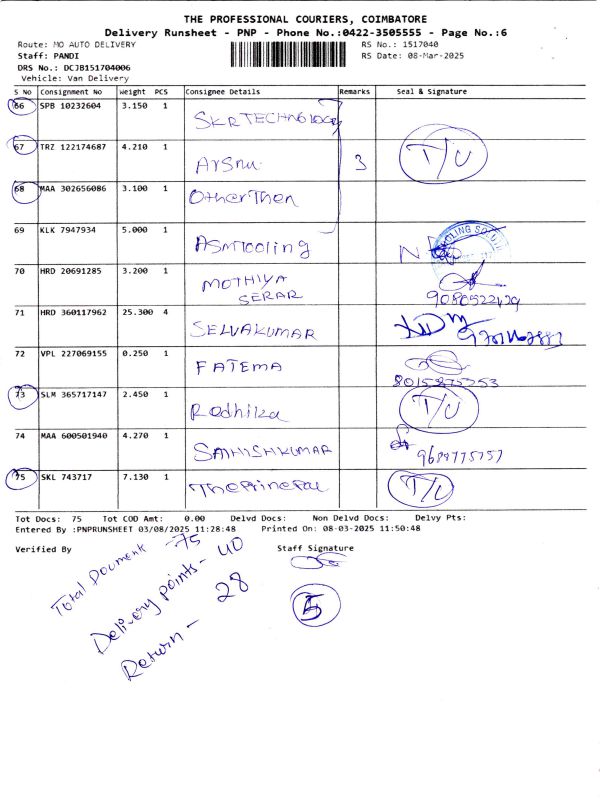 THE PROFESSIONAL COURIERS, COIMBATORE
Delivery Runsheet - PNP - Phone No.:0422-3505555 - Page No.:6
Route: MO AUTO DELIVERY RS No.: 1517040
Staff: PANDI RS Date: 08-Mar-2025
DRS No.: DCJB151704006
Vehicle: Van Delivery
S No Consignment No Weight PCS Consignee Details Remarks Seal & Signature
66 SPB 10232604 3.150 1 SKR TECHNOLOGY
67 TRZ 122174687 4.210 1 3 T/U
68 MAA 302656086 3.100 1 OtherThen
69 KLK 7947934 5.000 1 ASMTCOLING
70 HRD 20691285 3.200 1 MOTHIYA SERAR
71 HRD 360117962 25.300 4 SELVAKUMAR
72 VPL 227069155 0.250 1 FATEMA 8015875253
73 SLM 365717147 2.450 1 Radhika T/U
74 MAA 600501940 4.270 1 SATHISHKUMAR 9689775757
75 SKL 743717 7.130 1 T/U
Tot Docs: 75 Tot COD Amt: 0.00 Delvd Docs: Non Delvd Docs: Delvy Pts:
Entered By :PNPRUNSHEET 03/08/2025 11:28:48 Printed On: 08-03-2025 11:50:48
Verified By Staff Signature
Total Document - 75
Delivery points - 40
Return - 28